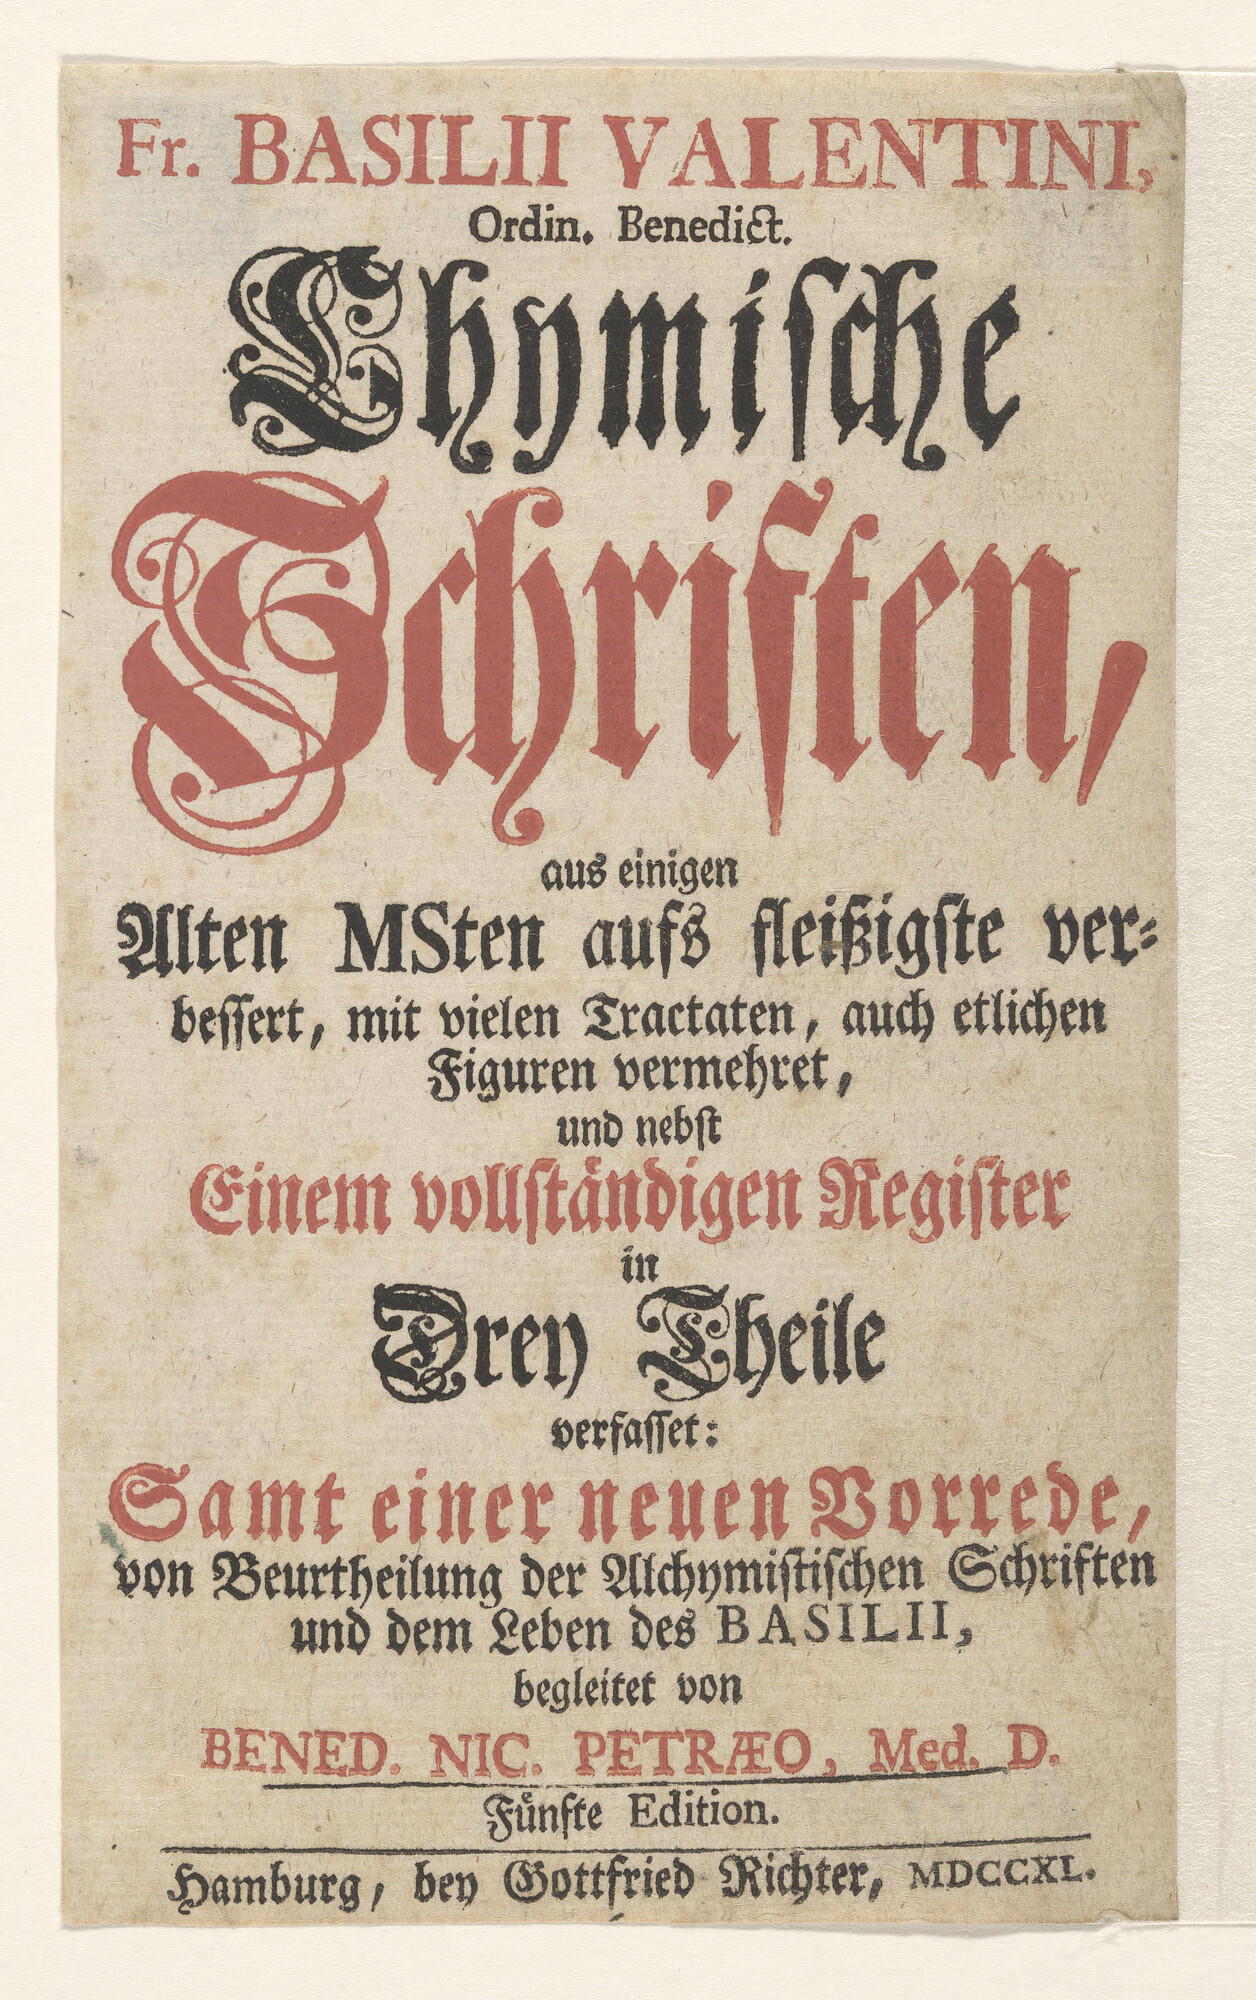 Fr. BASILII VALENTINI,
Ordin. Benedict.
Chymische
Schriften,
aus einigen
Alten MSten aufs fleißigste ver-
bessert, mit vielen Tractaten, auch etlichen
Figuren vermehret,
und nebst
Einem vollständigen Register
in
Drey Theile
verfasset:
Samt einer neuen Vorrede,
von Beurtheilung der Alchymistischen Schriften
und dem Leben des BASILII,
begleitet von
BENED. NIC. PETRÆO, Med. D.
Fünfte Edition.
Hamburg, bey Gottfried Richter, MDCCXL.